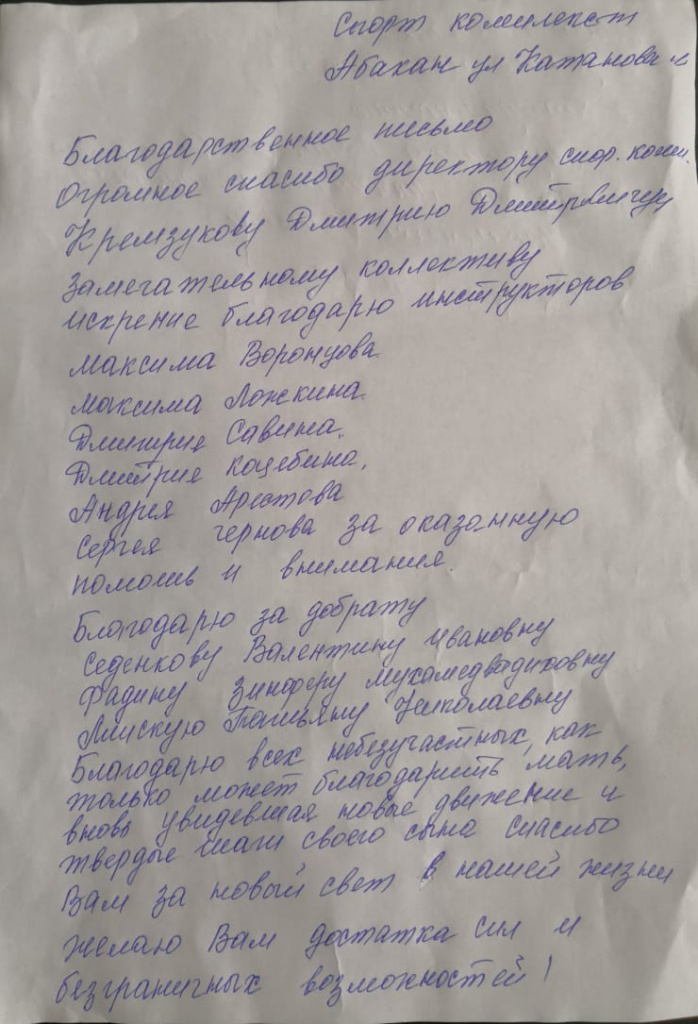 Спорт комплекст
Абакан ул Катанова
Благодарственное письмо
Огромное спасибо директору спор. комп.
Кремзукову Дмитрию Дмитриевичу
замечательному коллективу
искрение благодарю инструкторов
Максима Воронцова.
Максима Ложкина.
Дмитрие Савина.
Дмитрие Коцебина,
Андрея Арестова
Сергея Чернова за оказанную
помощь и внимания.
Благодарю за доброту
Седенкову Валентину Ивановну
Фадину Зинферу
Татьяну Николаевну
Благодарю всех небезучастных, как
только может благодарить мать,
вновь увидевшая новые движение и
твердые шаги своего сына спасибо
Вам за новый свет в нашей жизни
желаю Вам достатка сил и
безграничных возможностей!